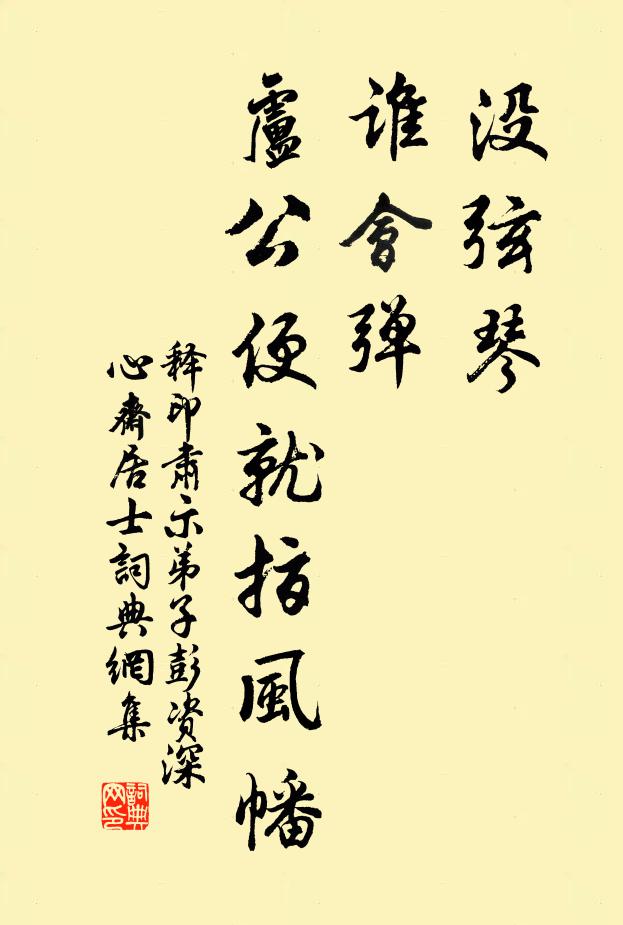 没弦琴
谁會弹
盧公便就指風幡
释印肃示弟子彭资深
心齋居士詞典網集
詞典
网印